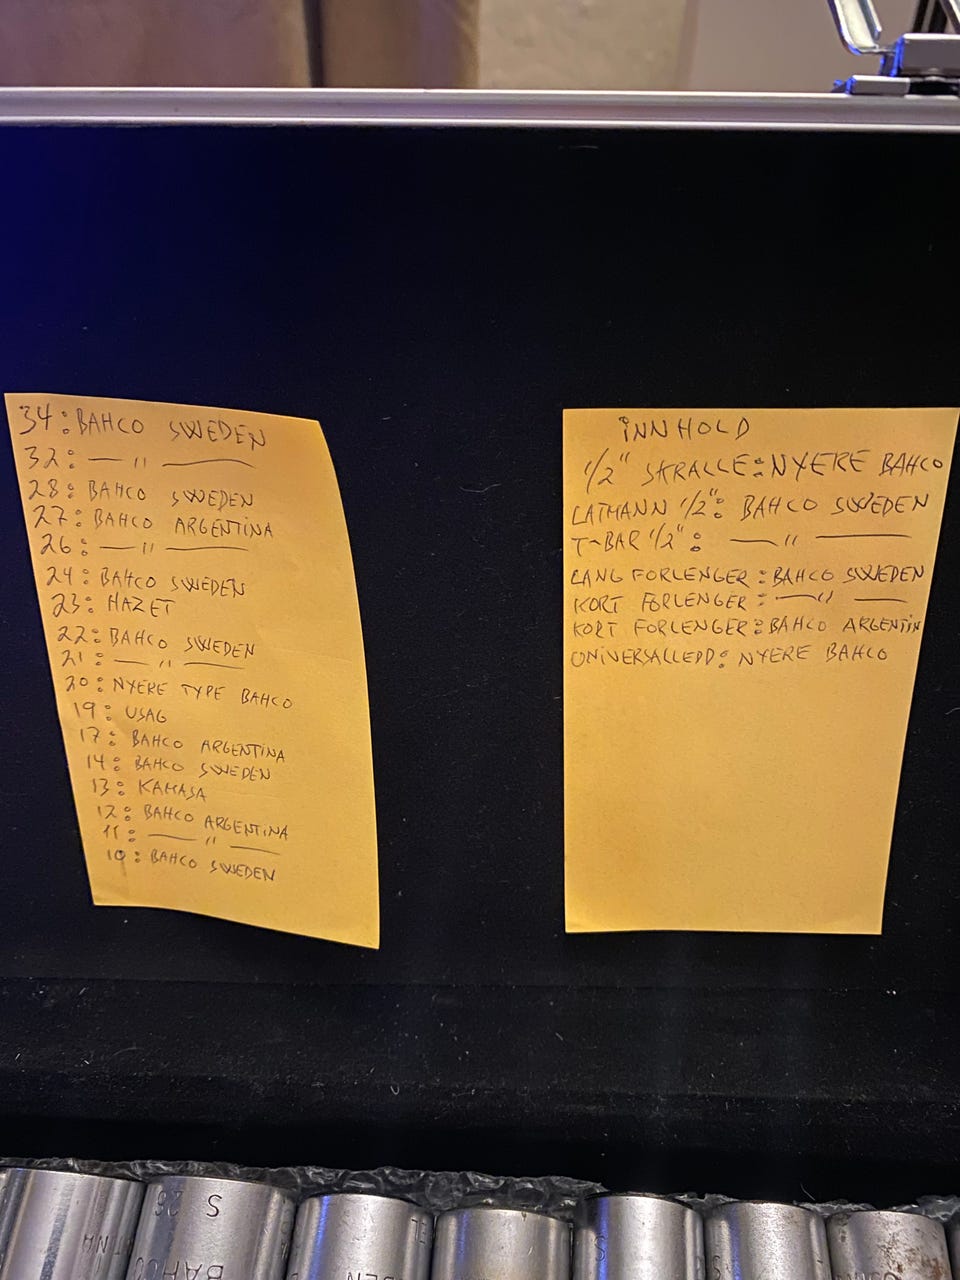 34: BAHCO SWEDEN
32: — " —
28: BAHCO SWEDEN
27: BAHCO ARGENTINA
26: — " —
24: BAHCO SWEDEN
23: HAZET
22: BAHCO SWEDEN
21: — " —
20: NYERE TYPE BAHCO
19: USAG
17: BAHCO ARGENTINA
14: BAHCO SWEDEN
13: KAMASA
12: BAHCO ARGENTINA
11: — " —
10: BAHCO SWEDEN
INNHOLD
1/2" SKRALLE: NYERE BAHCO
LATMANN 1/2": BAHCO SWEDEN
T-BAR 1/2": — " —
LANG FORLENGER: BAHCO SWEDEN
KORT FORLENGER: — " —
KORT FORLENGER: BAHCO ARGENTIN
UNIVERSALLEDD: NYERE BAHCO
S 26
BAHCO